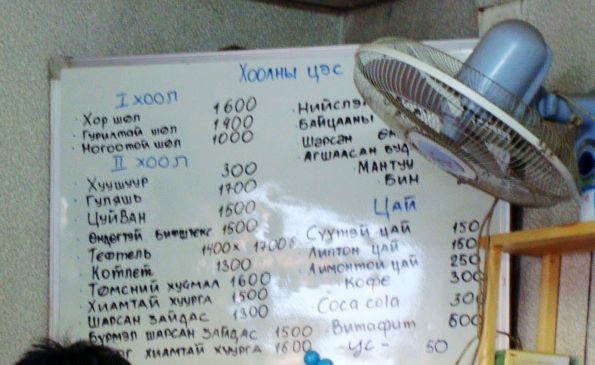 Хоолны цэс
I хоол
Хар шөл 1600
Гурилтай шөл 1400
Ногоотой шөл 1000
II хоол
Хуушуур 300
Гуляшь 1700
Цуйван 1500
Өндөгтэй бифштекс 1500
Тефтель 1400х 1700б
Котлет 1300
Төмсний хуумал 1600
Хиамтай хуурга 1500
Шарсан зайдас 1300
Бүрмэл шарсан зайдас 1500
хиамтай хуурга 1600
Байцааны
Шарсан
Агшаасан
Мантуу
Бин
Цай
Сүүтэй цай 150
Липтон цай 150
Лимонтой цай 250
Кофе 300
Coca cola 300
Витафит 500
Ус - 50